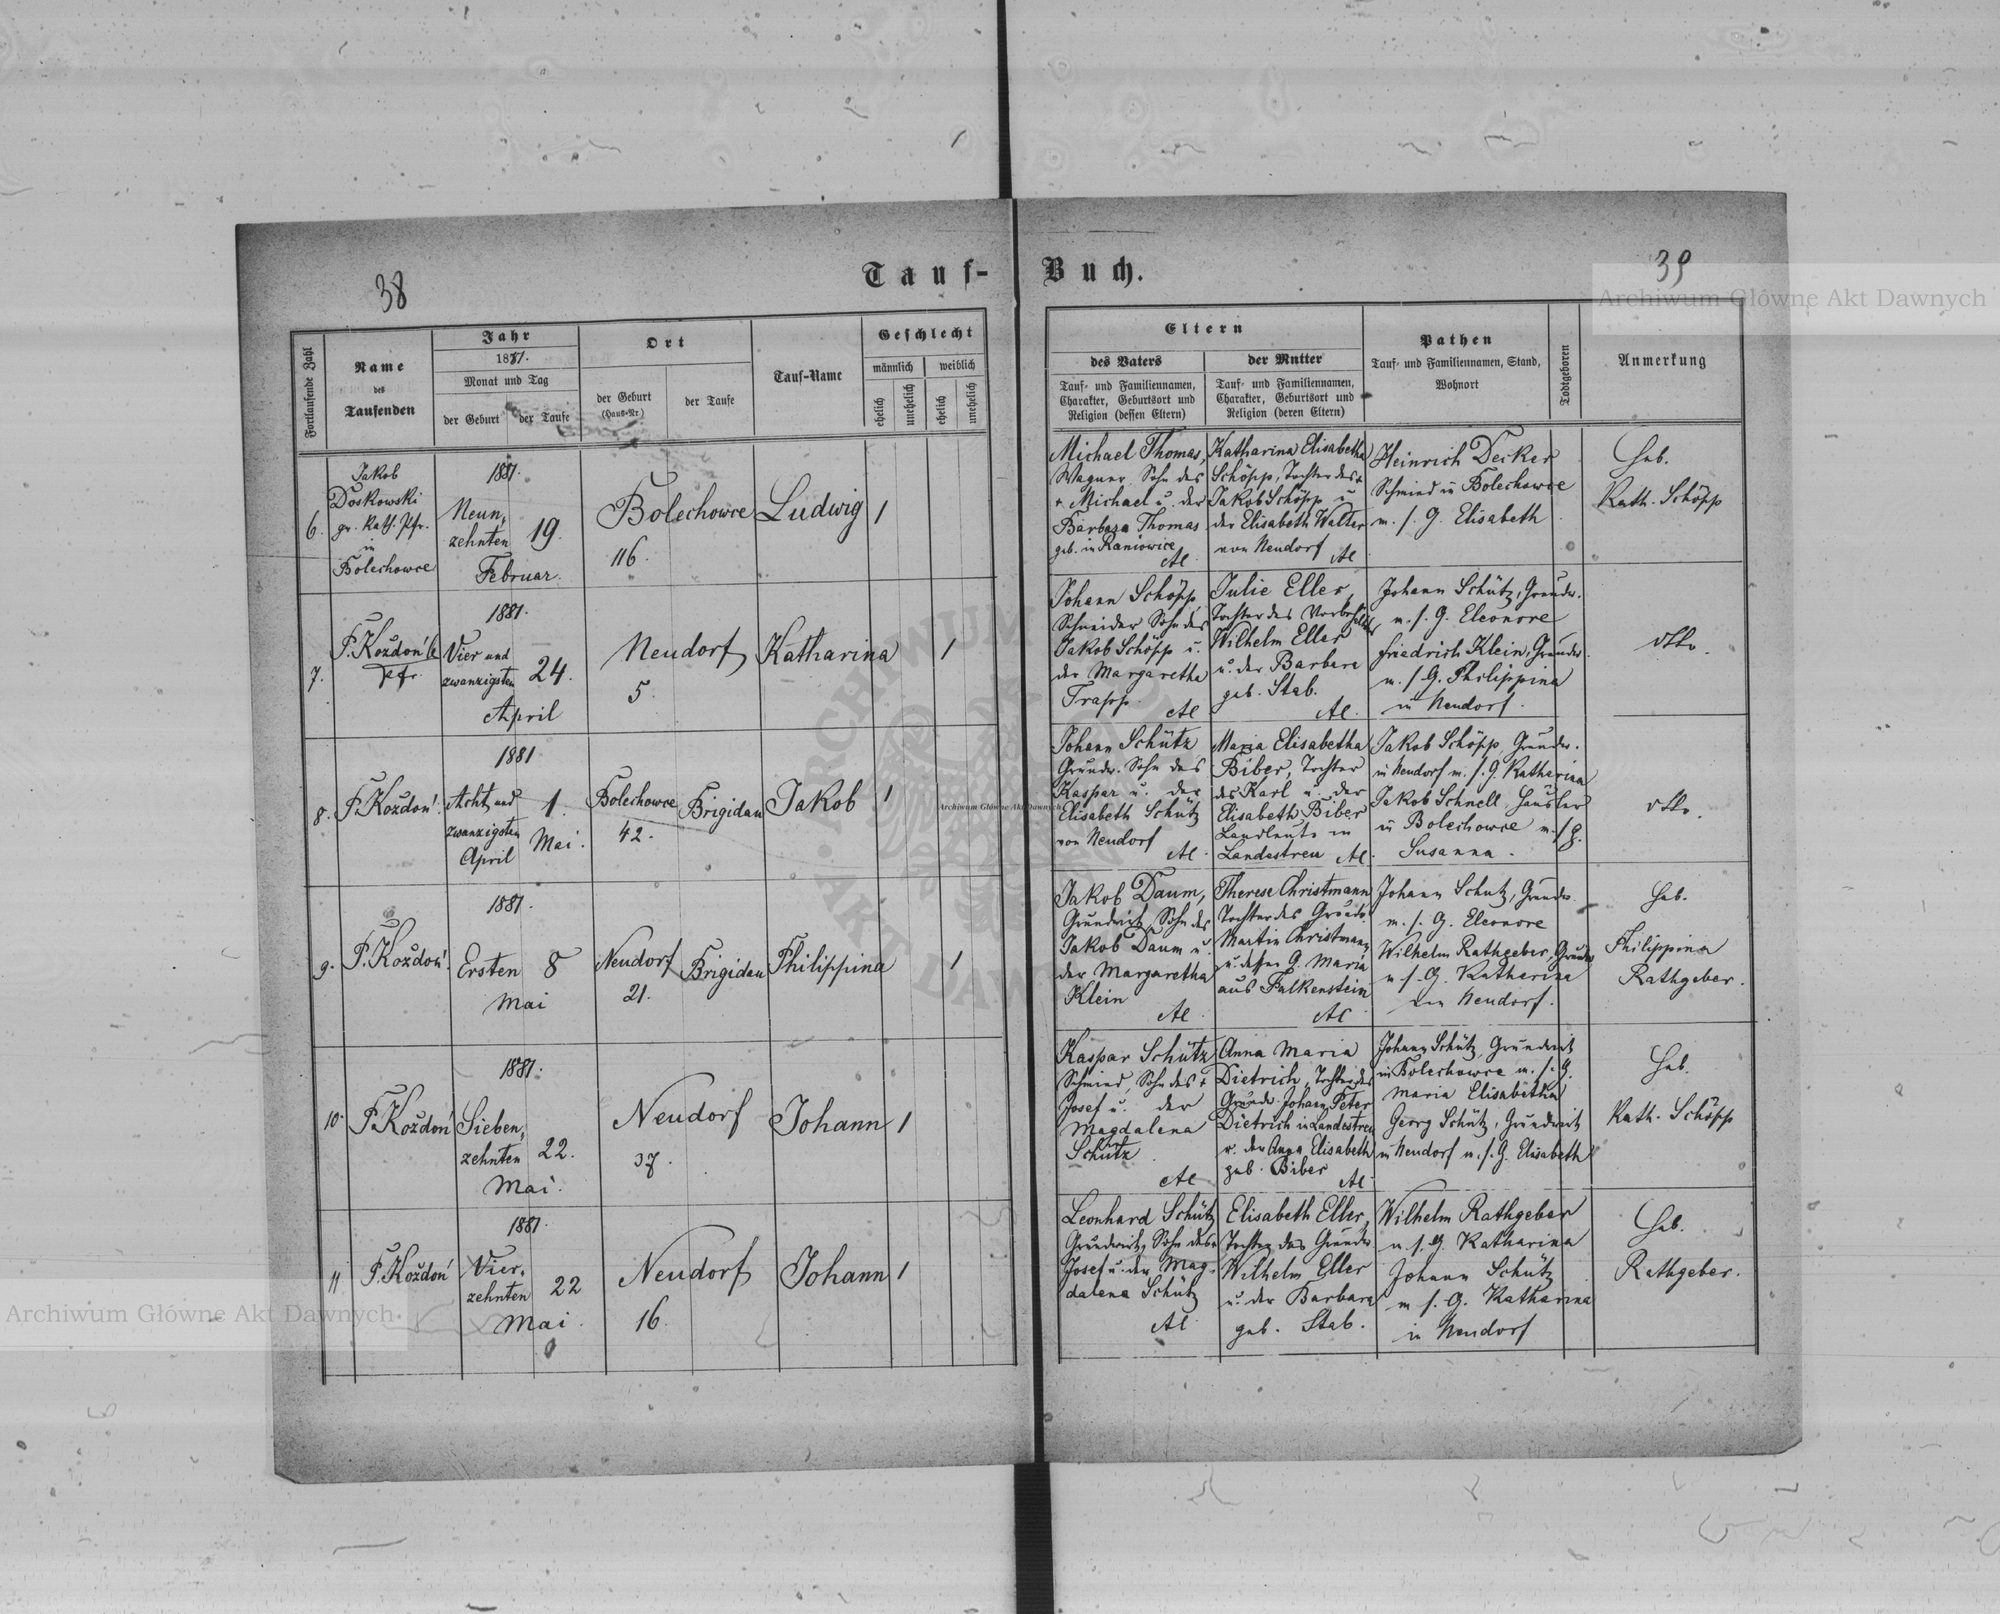 38
Tauf-
Fortlaufende Zahl
Name
des
Taufenden
Jahr
1881.
Monat und Tag
der Geburt
der Taufe
Ort
der Geburt
(Haus-Nr.)
der Taufe
Tauf-Name
Geschlecht
männlich
weiblich
ehelich
unehelich
ehelich
unehelich
6.
Jakob
Doskowski
gr. kath. Pfr.
in
Bolechowce
1881.
Neun-
zehnten
19.
Februar.
Bolechowce
116.
Ludwig
1
7.
F. Koždoń
Pfr.
1881.
Vier und
zwanzigsten
24.
April
Neudorf
5.
Katharina
1
8.
F. Koždoń
1881
Acht und
zwanzigsten
April
1.
Mai.
Bolechowce
42.
Brigidau
Jakob
1
9.
F. Koždoń
1881.
Ersten
8
Mai
Neudorf
21.
Brigidau
Philippina
1
10.
F. Koždoń
1881.
Sieben-
zehnten
22.
Mai.
Neudorf
37.
Johann
1
11
F. Koždoń
1881.
Vier-
zehnten
22
Mai.
Neudorf
16.
Johann
1
39
Buch.
Eltern
des Vaters
Tauf- und Familiennamen,
Charakter, Geburtsort und
Religion (dessen Eltern)
der Mutter
Tauf- und Familiennamen,
Charakter, Geburtsort und
Religion (deren Eltern)
Pathen
Tauf- und Familiennamen, Stand,
Wohnort
Todtgeboren
Anmerkung
Michael Thomas,
Wagner, Sohn des
+ Michael u. der
Barbara Thomas
geb. in Raniowice
AC
Katharina Elisabetha
Schöpp, Tochter des +
Jakob Schöpp u
der Elisabeth Walter
von Neudorf
AC
Heinrich Decker
Schmied in Bolechowce
m. s. G. Elisabeth
Heb.
Kath. Schöpp
Johann Schöpp,
Schneider Sohn des
Jakob Schöpp u.
der Margaretha
Trapp.
AC
Julie Eller,
Tochter des
Wilhelm Eller
u. der Barbara
geb. Stab.
AC.
Johann Schütz, Grundw.
m. s. G. Eleonore
Friedrich Klein, Grundw.
m. s. G. Philippina
in Neudorf.
dtto.
Johann Schütz
Grundw. Sohn des
Kaspar u. der
Elisabeth Schütz
von Neudorf
AC.
Maria Elisabetha
Biber, Tochter
des Karl u. der
Elisabeth Biber
Landleute in
Landestreu AC.
Jakob Schöpp, Grundw.
in Neudorf m. s. G. Katharina
Jakob Schnell Häusler
in Bolechowce m. s. G.
Susanna.
dtto.
Jakob Daum,
Grundwirt, Sohn des
Jakob Daum u.
der Margaretha
Klein
AC.
Therese Christmann
Tochter des Grundw.
Martin Christmann
u. dessen G. Maria
aus Falkenstein
AC.
Johann Schutz, Grundw.
m. s. G. Eleonore
Wilhelm Rathgeber, Grundw.
m. s. G. Katharina
von Neudorf.
Heb.
Philippina
Rathgeber.
Kaspar Schütz
Schmied, Sohn des +
Josef u. der
Magdalena
Schütz
AC
Anna Maria
Dietrich, Tochter des
Grundw. Johann Peter
Dietrich in Landestreu
u. der Anna Elisabeth
geb. Biber
AC.
Johann Schütz, Grundwirt
in Bolechowce m. s. G.
Maria Elisabetha
Georg Schütz, Grundwirt
in Neudorf m. s. G. Elisabeth
Heb.
Kath. Schöpp
Leonhard Schütz
Grundwirt, Sohn des +
Josef u. der Mag-
dalena Schütz
AC.
Elisabeth Eller,
Tochter des Grundw.
Wilhelm Eller
u. der Barbara
geb. Stab.
Wilhelm Rathgeber
m. s. G. Katharina
Johann Schütz
m. s. G. Katharina
in Neudorf
Heb.
Rathgeber.
Archiwum Główne Akt Dawnych
Archiwum Główne Akt Dawnych
Archiwum Główne Akt Dawnych